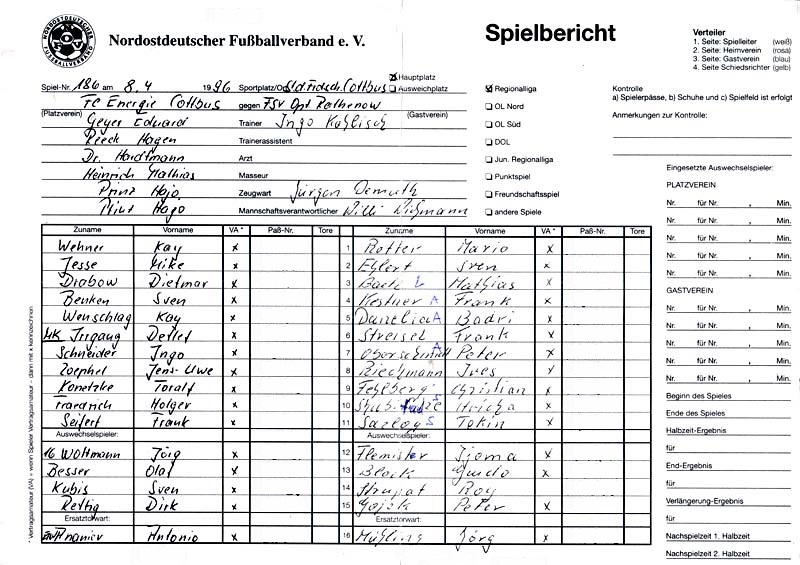 NORDOSTDEUTSCHER FUSSBALLVERBAND
NOFV
Nordostdeutscher Fußballverband e. V.
Spielbericht
Verteiler
1. Seite: Spielleiter (weiß)
2. Seite: Heimverein (rosa)
3. Seite: Gastverein (blau)
4. Seite Schiedsrichter (gelb)
Spiel-Nr. 186 am 8.4 1996 Sportplatz/Ort Cottbus
x Hauptplatz
Ausweichplatz
FC Energie Cottbus gegen FSV Opt Rathenow
(Platzverein) (Gastverein)
Geyer Eduard Trainer Ingo Kahlisch
Reeck Hagen Trainerassistent
Dr. Hardtmann Arzt
Heinrich Mathias Masseur
Prinz Hajo Zeugwart Jürgen Demuth
Prinz Hajo Mannschaftsverantwortlicher Willi
x Regionalliga
OL Nord
OL Süd
DOL
Jun. Regionalliga
Punktspiel
Freundschaftsspiel
andere Spiele
Kontrolle
a) Spielerpässe, b) Schuhe und c) Spielfeld ist erfolgt
Anmerkungen zur Kontrolle:
Zuname Vorname VA * Paß-Nr. Tore Zuname Vorname VA * Paß-Nr. Tore
Wehner Kay x 1 Rotter Mario x
Jesse Mike x 2 Ehlert Sven x
Drabow Dietmar x 3 Back L Mathias x
Benken Sven x 4 Kestner A Frank x
Wenschlag Kay x 5 Danelia A Badri x
MK Irrgang Detlef x 6 Streisel Frank x
Schneider Ingo x 7 A Peter x
Zoephel Jens-Uwe x 8 Riechmann Ives x
Konetzke Toralf x 9 Fehlberg S Christian x
Friedrich Holger x 10 x
Seifert Frank x 11 S x
Auswechselspieler: Auswechselspieler:
16 Wottmann Jörg x 12 Flemister x
Besser Olaf x 13 Block Guido x
Kubis Sven x 14 Roy
Rettig Dirk x 15 Peter x
Ersatztorwart: Ersatztorwart:
Antonio x 16 Jörg x
* Vertragsamateur (VA) = wenn Spieler Vertragsamateur – dann mit x kennzeichnen
Eingesetzte Auswechselspieler:
PLATZVEREIN
Nr. für Nr. , Min.
Nr. für Nr. , Min.
Nr. für Nr. , Min.
Nr. für Nr. , Min.
Nr. für Nr. , Min.
GASTVEREIN
Nr. für Nr. , Min.
Nr. für Nr. , Min.
Nr. für Nr. , Min.
Nr. für Nr. , Min.
Nr. für Nr. , Min.
Beginn des Spieles
Ende des Spieles
Halbzeit-Ergebnis
für
End-Ergebnis
für
Verlängerung-Ergebnis
für
Nachspielzeit 1. Halbzeit
Nachspielzeit 2. Halbzeit